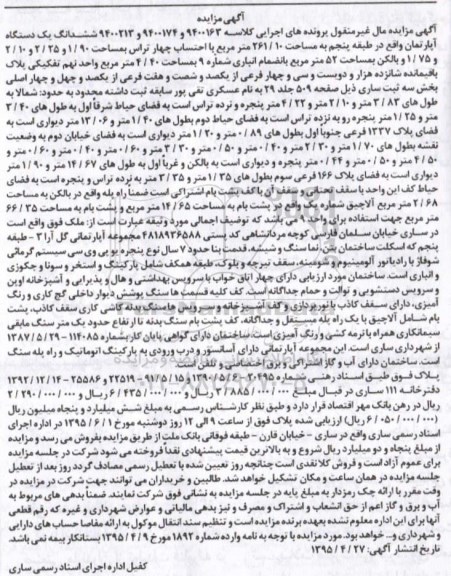 آگهی مزایده
آگهی مزایده مال غیرمنقول پرونده های اجرایی کلاسه ۹۴۰۰۱۶۳ و ۹۴۰۰۱۷۴ و ۹۴۰۰۲۱۳ ششدانگ یک دستگاه
آپارتمان واقع در طبقه پنجم به مساحت ۱۰ / ۲۶۱ متر مربع با احتساب چهار تراس بمساحت ۹۰ / ۱ و ۲۵ / ۲ و ۱۰ / ۲
و ۷۵ / ۱ و بالکن بمساحت ۵۲ متر مربع بانضمام انباری شماره ۹ بمساحت ۴۰ / ۴ متر مربع واحد نهم تفکیکی پلاک
باقیمانده شانزده هزار و دویست و سی و چهار فرعی از یکصد و شصت و هفت فرعی از یکصد و چهل و چهار اصلی
بخش سه ثبت ساری ذیل صفحه ۵۰۹ جلد ۲۹ به نام عسکری تقی پور سابقه ثبت داشته محدود به حدود: شمالا به
طول های ۸۳ / ۳ متر و ۱۰ / ۲ متر و ۲۲ / ۴ متر پنجره و نرده تراس است به فضای حیاط شرقاً اول به طول های ۴۰ / ۳
متر و ۲۵ / ۱ متر پنجره رو به نرده تراس است به فضای حیاط دوم بطول های ۴۰ / ۱ متر و ۰۶ / ۱۳ متر دیواری است به
فضای پلاک ۱۳۳۷ فرعی جنوبا اول بطول های ۸۹ / ۰ متر و ۲۰ / ۱ متر دیواری است به فضای خیابان دوم به وضعیت
نقشه بطول های ۷۰ / ۱ متر و ۳۰ / ۲ متر و ۴۰ / ۰ متر و ۵۰ / ۰ متر و ۳۰ / ۳ متر و ۶۰ / ۰ متر و ۴۰ / ۰ متر و ۶۰ / ۰ متر و
۵۰ / ۴ متر و ۵۰ / ۰ متر و ۴۴ / ۰ متر پنجره و دیواری است به بالکن و غربا اول به طول های ۶۷ / ۱۴ متر و ۹۰ / ۱ متر
دیواری است به فضای پلاک ۱۶۶ فرعی سوم بطول های ۳۵ / ۱ متر و ۳۵ / ۳ متر به نرده تراس و پنجره است به فضای
حیاط کف این واحد با سقف تحتانی و سقف آن با کف پشت بام اشتراکی است ضمنا راه پله واقع در بالکن به مساحت
۶۸ / ۲ متر مربع آلاچیق شماره یک واقع در پشت بام به مساحت ۶۵ / ۱۴ متر مربع و پشت بام به مساحت ۳۵ / ۶۶
متر مربع جهت استفاده برای واحد ۹ می باشد که توضیف اجمالی مورد وثیقه عبارت است از: ملک فوق واقع است
در ساری خیابان سلمان فارسی کوچه مردانشاهی کد پستی ۴۸۱۸۹۳۶۵۸۸ مجموعه آپارتمانی گل آرا ۳ - طبقه
پنجم که اسکلت ساختمان بتن، نما سنگ و شیشه، قدمت بنا حدود ۷ سال نوع پنجره یو پی وی سی سیستم گرمائی
شوفاژ با رادیاتور آلومینیوم و شومینه، سقف تیرچه و بلوک، طبقه همکف شامل پارکینگ و استخر و سونا و جکوزی
و انباری است. ساختمان مورد ارزیابی دارای چهار اتاق خواب با سرویس بهداشتی و هال و پذیرایی و آشپزخانه اوپن
و سرویس دستشویی و توالت و حمام جداگانه است. کف کلیه قسمت ها سنگ پوشش دیوار داخلی گچ کاری و رنگ
آمیزی، دارای سقف کاذب با نورپردازی و کف آشپزخانه و سرویس ها سنگ بدنه کاشی کاری سقف کاذب، پشت
بام شامل آلاچیق با یک راه پله مستقل و جداگانه، کف پشت بام سنگ بدنه تا ارتفاع حدود یک متر سنگ مابقی
سیمانکاری همراه با ترمه کشی و رنگ آمیزی است. ساختمان دارای گواهی پایان کار بشماره ۱۱۴۰۸۵ - ۲۹ / ۵ / ۱۳۸۷
از شهرداری ساری است. این مجموعه آپارتمانی دارای آسانسور و درب ورودی به پارکینگ اتوماتیک و راه پله سنگ
است. ساختمان دارای آب و گاز اشتراکی و برق اختصاصی و تلفن است
پلاک فوق طبق اسناد رهنی شماره ۲۰۴۹۵ - ۴ / ۵ / ۱۳۹۰ و ۲۲۵۱۹ - ۱۵ / ۵ / ۹۱ و ۲۵۵۸۶ - ۱۴ / ۱۲ / ۱۳۹۲
دفترخانه ۱۱۱ ساری در قبال مبلغ ۰۰۰ / ۰۰۰ / ۸۸۵ / ۳ ریال و ۰۰۰ / ۰۰۰ / ۴۳۵ / ۶ ریال و ۰۰۰ / ۰۰۰ / ۲۹۰ / ۲
ریال در رهن بانک مهر اقتصاد قرار دارد و طبق نظر کارشناس رسمی به مبلغ شش میلیارد و پنجاه میلیون ریال
(۰۰۰ / ۰۰۰ / ۰۵۰ / ۶ ریال) ارزیابی شده پلاک فوق از ساعت ۹ الی ۱۲ روز دوشنبه مورخ ۱ / ۶ / ۱۳۹۵ در اداره اجرای
اسناد رسمی ساری واقع در ساری - خیابان قارن - طبقه فوقانی بانک ملت از طریق مزایده بفروش می رسد و مزایده
از مبلغ پنجاه و دو میلیارد ریال شروع و به بالاترین قیمت پیشنهادی نقداً فروخته می شود شرکت در جلسه مزایده
برای عموم آزاد است و فروش کلا نقدی است چنانچه روز تعیین شده با تعطیل رسمی مصادف گردد روز بعد از تعطیل
جلسه مزایده در همان ساعت و مکان تشکیل خواهد شد. طالبین و خریداران می توانند جهت شرکت در مزایده در
وقت مقرر با ارائه چک رمزدار به مبلغ پایه در جلسه مزایده به نشانی فوق شرکت نمایند. ضمنا بدهی های مربوط به
آب و برق و گاز اعم از حق انشعاب و اشتراک و مصرف و نیز بدهی مالیاتی و عوارض شهرداری و غیره که رقم قطعی
آنها برای این اداره معلوم نشده بعهده برنده مزایده است و تنظیم سند انتقال موکول به ارائه مفاصا حساب های دارایی
و شهرداری و... خواهد بود. مورد مزایده با توجه به نامه وارده شماره ۱۸۹۲ مورخ ۹ / ۴ / ۱۳۹۵ بستانکار بیمه نمی باشد.
تاریخ انتشار آگهی: ۲۷ / ۴ / ۱۳۹۵
کفیل اداره اجرای اسناد رسمی ساری